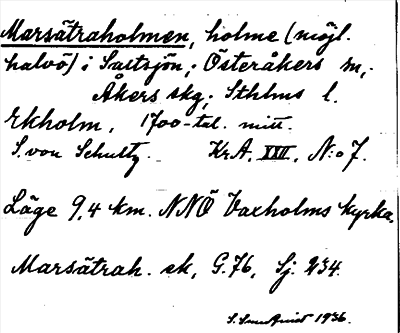 Marsätraholmen, holme (möjl.
halvö) i Saltsjön; Österåkers sn,
Åkers skg; Sthlms l.
Ekholm, 1700-tal. mitt.
S. von Schultz. Kr.A. XXII, N:o 7.
Läge 9,4 km. NNÖ Vaxholms kyrka.
Marsätrah. ek, G. 76, Sj. 234.
1936.